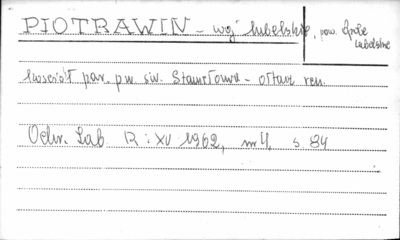 PIOTRAWIN - woj lubelskie, pow. Opole Lubelskie
kościół par. p.w. św. Stanisława - ołtarz ren.
Ochr. Zab. R: XV 1962, nr 4, s. 84